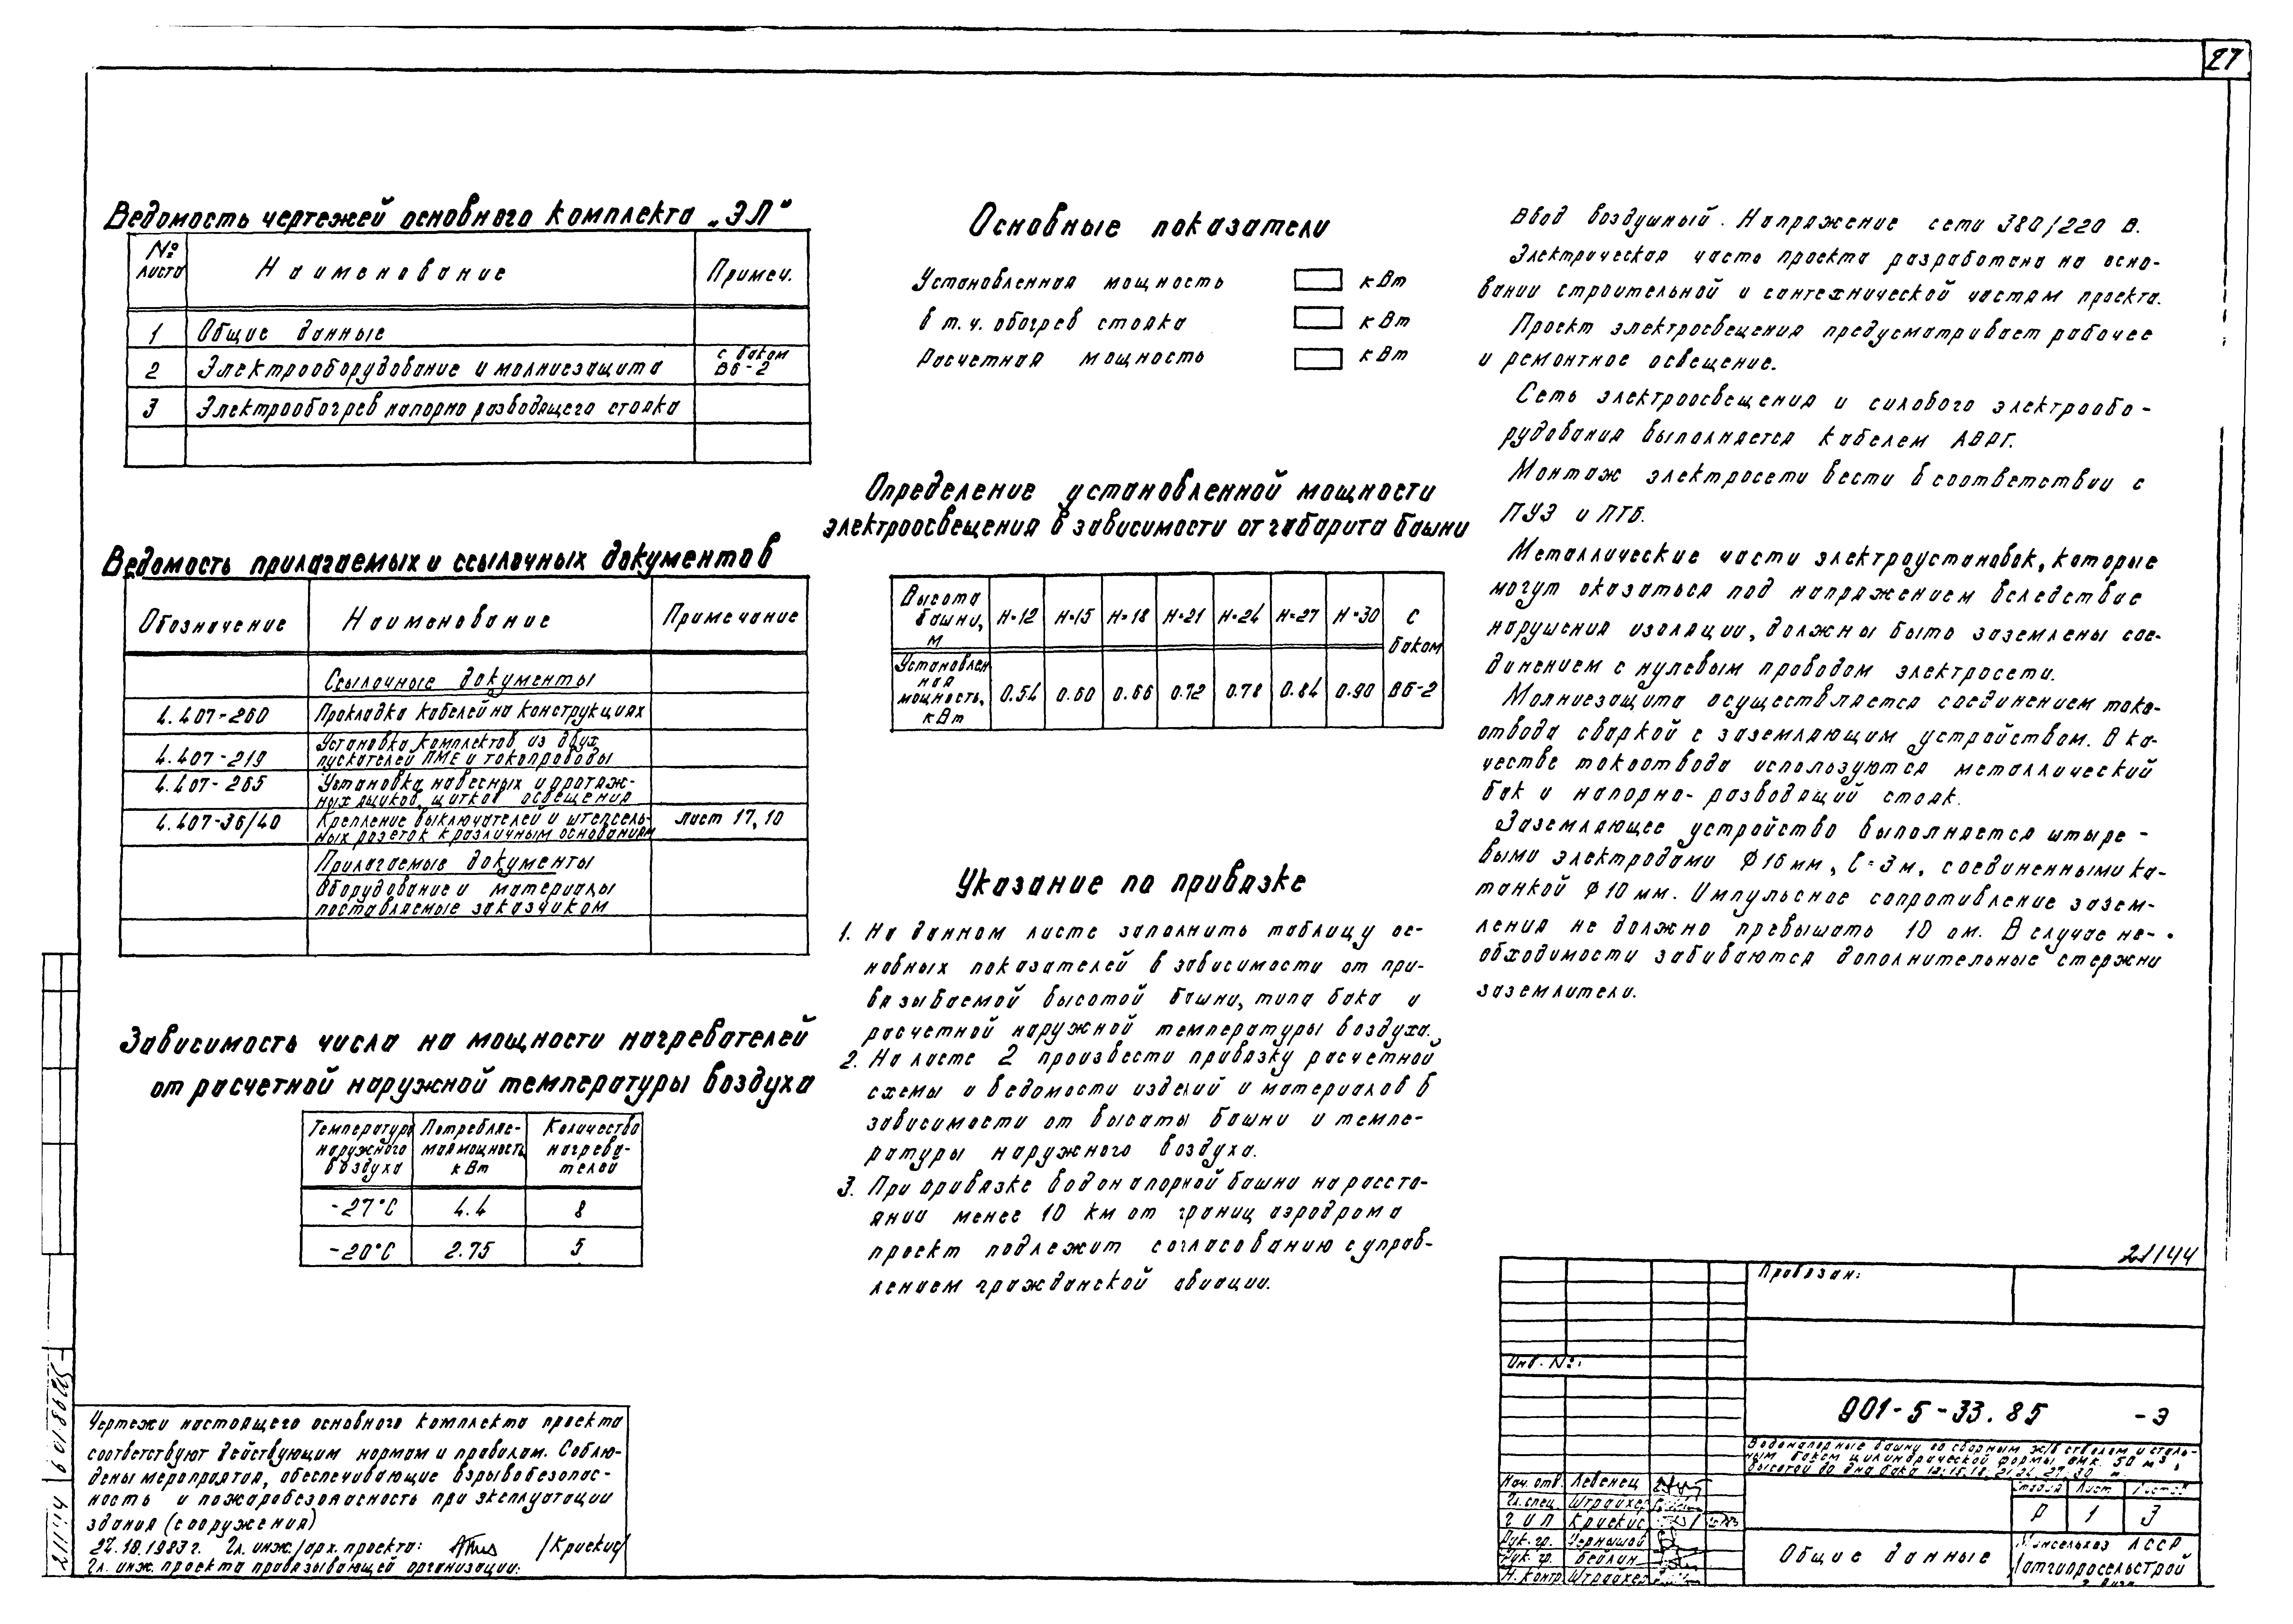 27
Ведомость чертежей основного комплекта „ЭЛ"
№ листа Наименование Примеч.
1 Общие данные
2 Электрооборудование и молниезащита с баком ВБ-2
3 Электрообогрев напорно разводящего стояка
Ведомость прилагаемых и ссылочных документов
Обозначение Наименование Примечание
Ссылочные документы
4.407-260 Прокладка кабелей на конструкциях
Установка комплектов из двух
4.407-219 пускателей ПМЕ и токопроводы
4.407-265 Установка навесных и протяж-
ных ящиков, щитков освещения
4.407-36/40 Крепление выключателей и штепсель- лист 17, 10
ных розеток к различным основаниям
Прилагаемые документы
Оборудование и материалы
поставляемые заказчиком
Зависимость числа на мощности нагревателей
от расчетной наружной температуры воздуха
Температура наружного воздуха Потребляемая мощность кВт Количество нагревателей
-27°С 4.4 8
-20°С 2.75 5
Чертежи настоящего основного комплекта проекта
соответствуют действующим нормам и правилам. Соблю-
дены мероприятия, обеспечивающие взрывобезопас-
ность и пожаробезопасность при эксплуатации
здания (сооружения)
22.10.1983г. Гл. инж./арх. проекта: /Криекис/
Гл. инж. проекта привязывающей организации:
Основные показатели
Установленная мощность кВт
в т.ч. обогрев стояка кВт
Расчетная мощность кВт
Определение установленной мощности
электроосвещения в зависимости от габарита башни
Высота башни, м Н=12 Н=15 Н=18 Н=21 Н=24 Н=27 Н=30 с баком
Установленная мощность, кВт 0.54 0.60 0.66 0.72 0.78 0.84 0.90 ВБ-2
Указание по привязке
1. На данном листе заполнить таблицу ос-
новных показателей в зависимости от при-
вязываемой высотой башни, типа бака и
расчетной наружной температуры воздуха.
2. На листе 2 произвести привязку расчетной
схемы и ведомости изделий и материалов в
зависимости от высоты башни и темпе-
ратуры наружного воздуха.
3. При привязке водонапорной башни на рассто-
янии менее 10 км от границ аэродрома
проект подлежит согласованию с управ-
лением гражданской авиации.
Ввод воздушный. Напряжение сети 380/220 В.
Электрическая часть проекта разработана на осно-
вании строительной и сантехнической частям проекта.
Проект электросвещения предусматривает рабочее
и ремонтное освещение.
Сеть электроосвещения и силового электрообо-
рудования выполняется кабелем АВРГ.
Монтаж электросети вести в соответствии с
ПУЭ и ПТБ.
Металлические части электроустановок, которые
могут оказаться под напряжением вследствие
нарушения изоляции, должны быть заземлены сое-
динением с нулевым проводом электросети.
Молниезащита осуществляется соединением токо-
отвода сваркой с заземляющим устройством. В ка-
честве токоотвода используются металлический
бак и напорно-разводящий стояк.
Заземляющее устройство выполняется штыре-
выми электродами Ф16мм, ℓ=3м, соединенными ка-
танкой Ф10мм. Импульсное сопротивление зазем-
ления не должно превышать 10 ом. В случае не-
обходимости забиваются дополнительные стержни
заземлители.
21144
Привязан:
Инв. №:
901-5-33.85 -Э
Водонапорные башни со сборным ж/б стволом и сталь-
ным баком цилиндрической формы, емк. 50 м³,
высотой до дна бака 12; 15; 18, 21, 24, 27, 30 м.
Нач. отд. Левенец
Гл. спец. Штрайхер
ГИП Криекис
Рук. гр. Чернышов
Рук. гр. Бейлин
Н. контр. Штрайхер
Стадия Лист Листов
Р 1 3
Общие данные
Минсельхоз ЛССР
Латгипросельстрой
21144